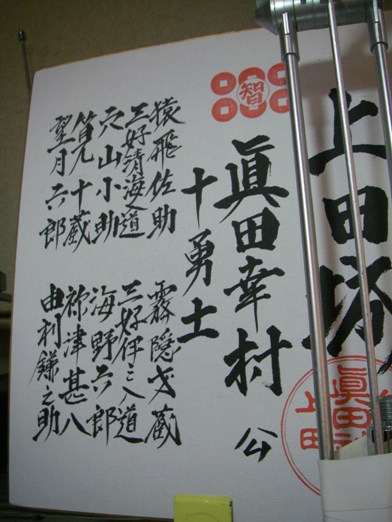 上田城
智
眞田幸村公
十勇士
猿飛佐助
霧隠才蔵
三好清海入道
三好伊三入道
穴山小助
海野六郎
筧十蔵
祢津甚八
望月六郎
由利鎌之助
眞田
上田